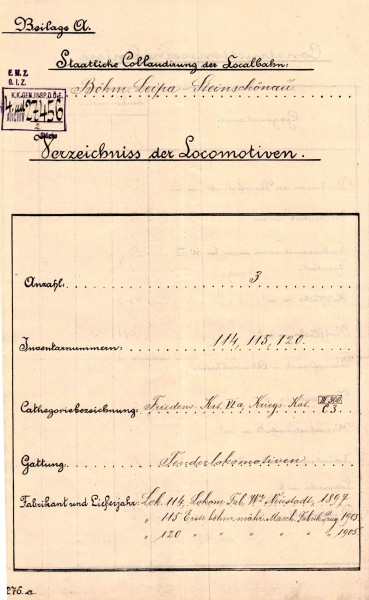 Beilage A.
Staatliche Collaudirung der Localbahn:
Böhm. Leipa - Steinschönau
E. M. Z.
O. I. Z.
K.K. GEN. INSP. D. Ö. E.
ARCHIV 27456
Verzeichniss der Locomotiven.
Anzahl: 3
Inventarnummern: 114, 115, 120.
Cathegoriebezeichnung: Friedens Kat. VIa, Kriegs Kat. C 3
Gattung: Tenderlokomotiven
Fabrikant und Lieferjahr: Lok. 114, Lokom. Fab. Wr. Neustadt, 1897
" 115 Erste böhm. mähr. Masch. Fabrik Prag 1903.
" 120 " " " " " 1905.
276.a.